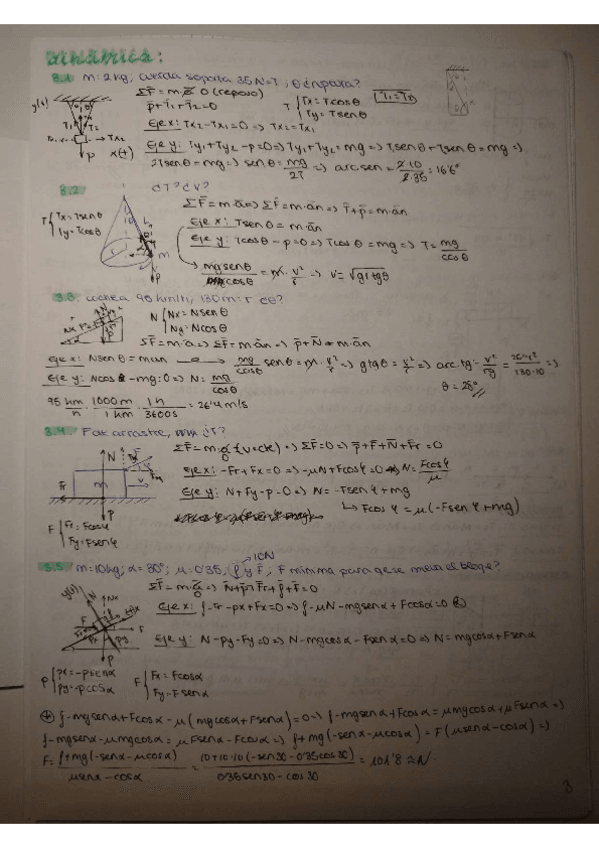 DINÁMICA:
3.1. m: 2kg; cuerda soporta 35N=T; θ énpura?
ΣF̄ = m·ā 0 (reposo)
p̄+T̄1+T̄2=0
T { Tx = Tcosθ
Ty = Tsenθ
T1=T2
y(+)
T1 T2
Tx2
x(+)
P
Eje x: Tx2-Tx1=0 => Tx2=Tx1
Eje y: Ty1+Ty2-p=0 => Ty1+Ty2=mg => Tsenθ+Tsenθ=mg =>
2Tsenθ=mg => senθ = mg/2T => arcsen = 2·10/2·35 = 16'6°
3.2. ¿T? ¿v?
T { Tx=Tsenθ
Ty=Tcosθ
ΣF̄ = m·ā => ΣF̄ = m·ān => T̄+p̄ = m·ān
Eje x: Tsenθ = m·ān
Eje y: Tcosθ - p=0 => Tcosθ = mg => T = mg/cosθ
mgsenθ/cosθ = m·v²/r => v = √grtgθ
3.3. coche a 95 km/h, 130m=r ¿θ?
N { Nx = Nsenθ
Ny = Ncosθ
ΣF̄ = m·ā => ΣF̄ = m·ān => p̄+N̄ = m·ān
Eje x: Nsenθ = m·an → mg/cosθ senθ = m·v²/r => gtgθ = v²/r => arc.tg = v²/rg = 26'4²/130·10 =>
Eje y: Ncosθ - mg=0 => N = mg/cosθ
θ = 28°
95 km/h · 1000m/1km · 1h/3600s = 26'4 m/s
3.4. F de arrastre, ¿F?
ΣF̄ = m·ā (v=ck) => ΣF̄=0 => p̄+F̄+N̄+F̄r=0
Eje x: -Fr+Fx=0 => -μN+Fcosφ=0 => N = Fcosφ/μ
Eje y: N+Fy-p=0 => N = -Fsenφ+mg
↳ Fcosφ = μ(-Fsenφ+mg)
N
Fr
m
v
P
F { Fx = Fcosφ
Fy = Fsenφ
10N
3.5. m=10kg; α=30°; μ=0'35; f y F̄; F mínima para qe se mueva el bloqe?
ΣF̄ = m·ā => N̄+p̄+F̄r+f̄+F̄=0
Eje x: f-Fr-px+Fx=0 => f-μN-mgsenα+Fcosα=0 ⊛
Eje y: N-py-Fy=0 => N-mgcosα-Fsenα=0 => N=mgcosα+Fsenα
p { px=-psenα
py=-pcosα
F { Fx = Fcosα
Fy=Fsenα
⊛ f-mgsenα+Fcosα-μ(mgcosα+Fsenα)=0 => f-mgsenα+Fcosα=μmgcosα+μFsenα =>
f-mgsenα-μmgcosα=μFsenα-Fcosα => f+mg(-senα-μcosα)=F(μsenα-cosα) =>
F = f+mg(-senα-μcosα)/μsenα-cosα = 10+10·10(-sen30-0'35cos30)/0'35sen30-cos30 = 101'8 N
3